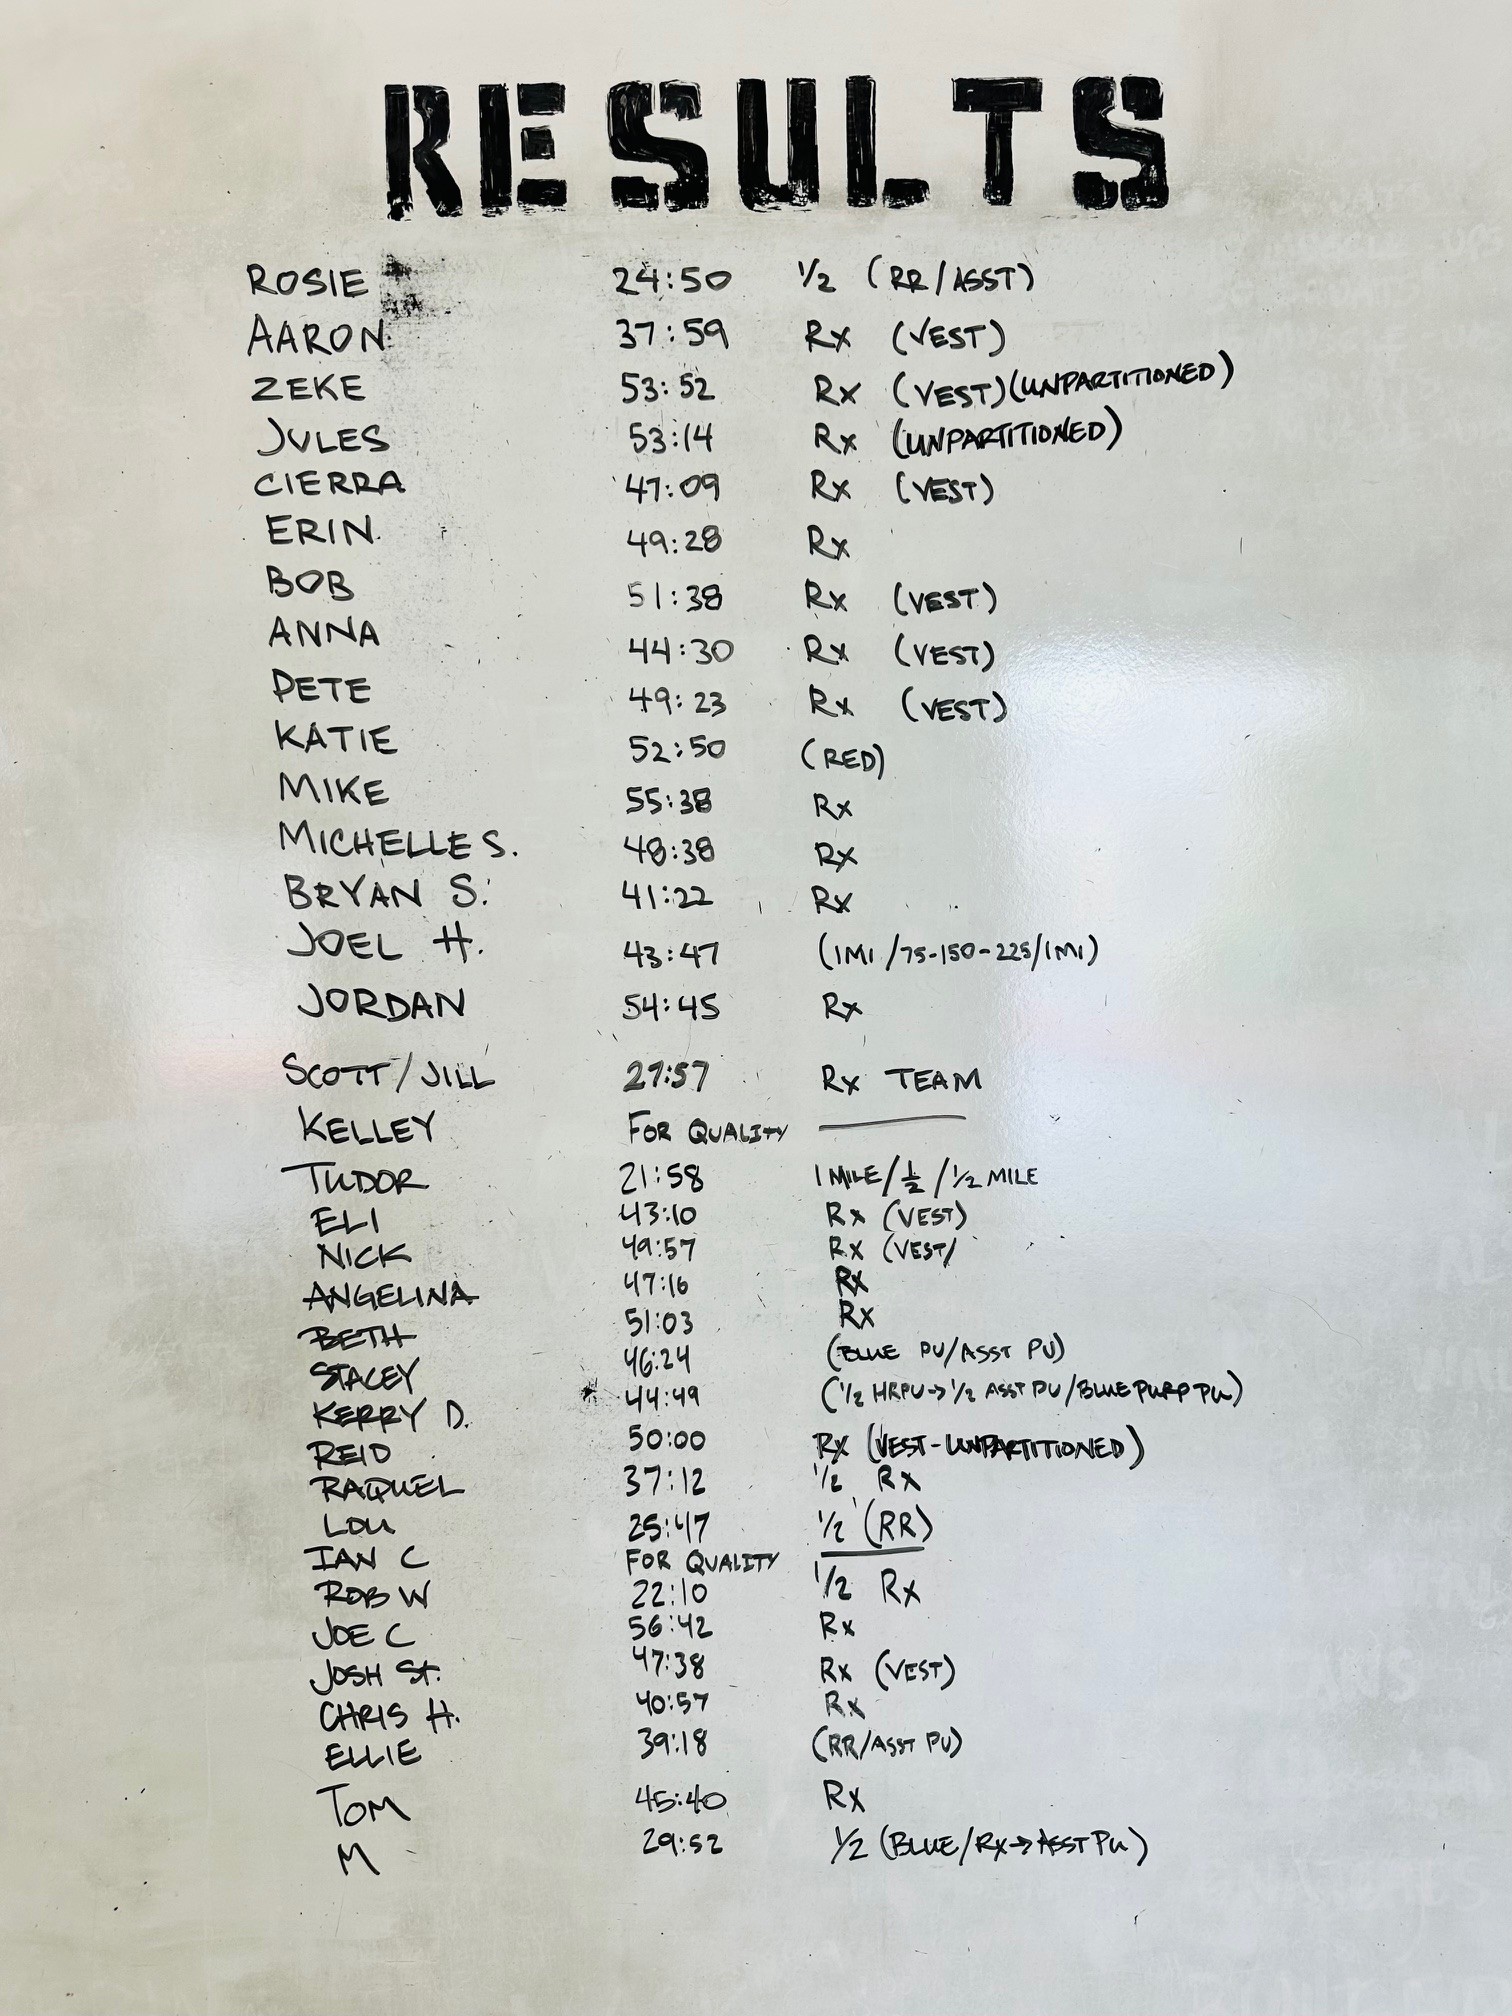 RESULTS
ROSIE 24:50 1/2 (RR/ASST)
AARON 37:59 Rx (VEST)
ZEKE 53:52 Rx (VEST)(UNPARTITIONED)
JULES 53:14 Rx (UNPARTITIONED)
CIERRA 47:09 Rx (VEST)
ERIN 49:28 Rx
BOB 51:38 Rx (VEST)
ANNA 44:30 Rx (VEST)
PETE 49:23 Rx (VEST)
KATIE 52:50 (RED)
MIKE 55:38 Rx
MICHELLE S. 48:38 Rx
BRYAN S. 41:22 Rx
JOEL H. 43:47 (1MI/75-150-225/1MI)
JORDAN 54:45 Rx
SCOTT/JILL 27:57 Rx TEAM
KELLEY FOR QUALITY
TUDOR 21:58 1 MILE/1/2/1/2 MILE
ELI 43:10 Rx (VEST)
NICK 49:57 Rx (VEST/
ANGELINA 47:16 Rx
BETH 51:03 Rx
STACEY 46:24 (BLUE PU/ASST PU)
KERRY D. 44:49 (1/2 HRPU→1/2 ASST PU/BLUE PURP PU)
REID 50:00 Rx (VEST-UNPARTITIONED)
RAQUEL 37:12 1/2 Rx
LOU 25:47 1/2 (RR)
IAN C FOR QUALITY
ROB W 22:10 1/2 Rx
JOE C 56:42 Rx
JOSH St. 47:38 Rx (VEST)
CHRIS H. 40:57 Rx
ELLIE 39:18 (RR/ASST PU)
TOM 45:40 Rx
M 29:52 1/2 (BLUE/Rx→ASST PU)